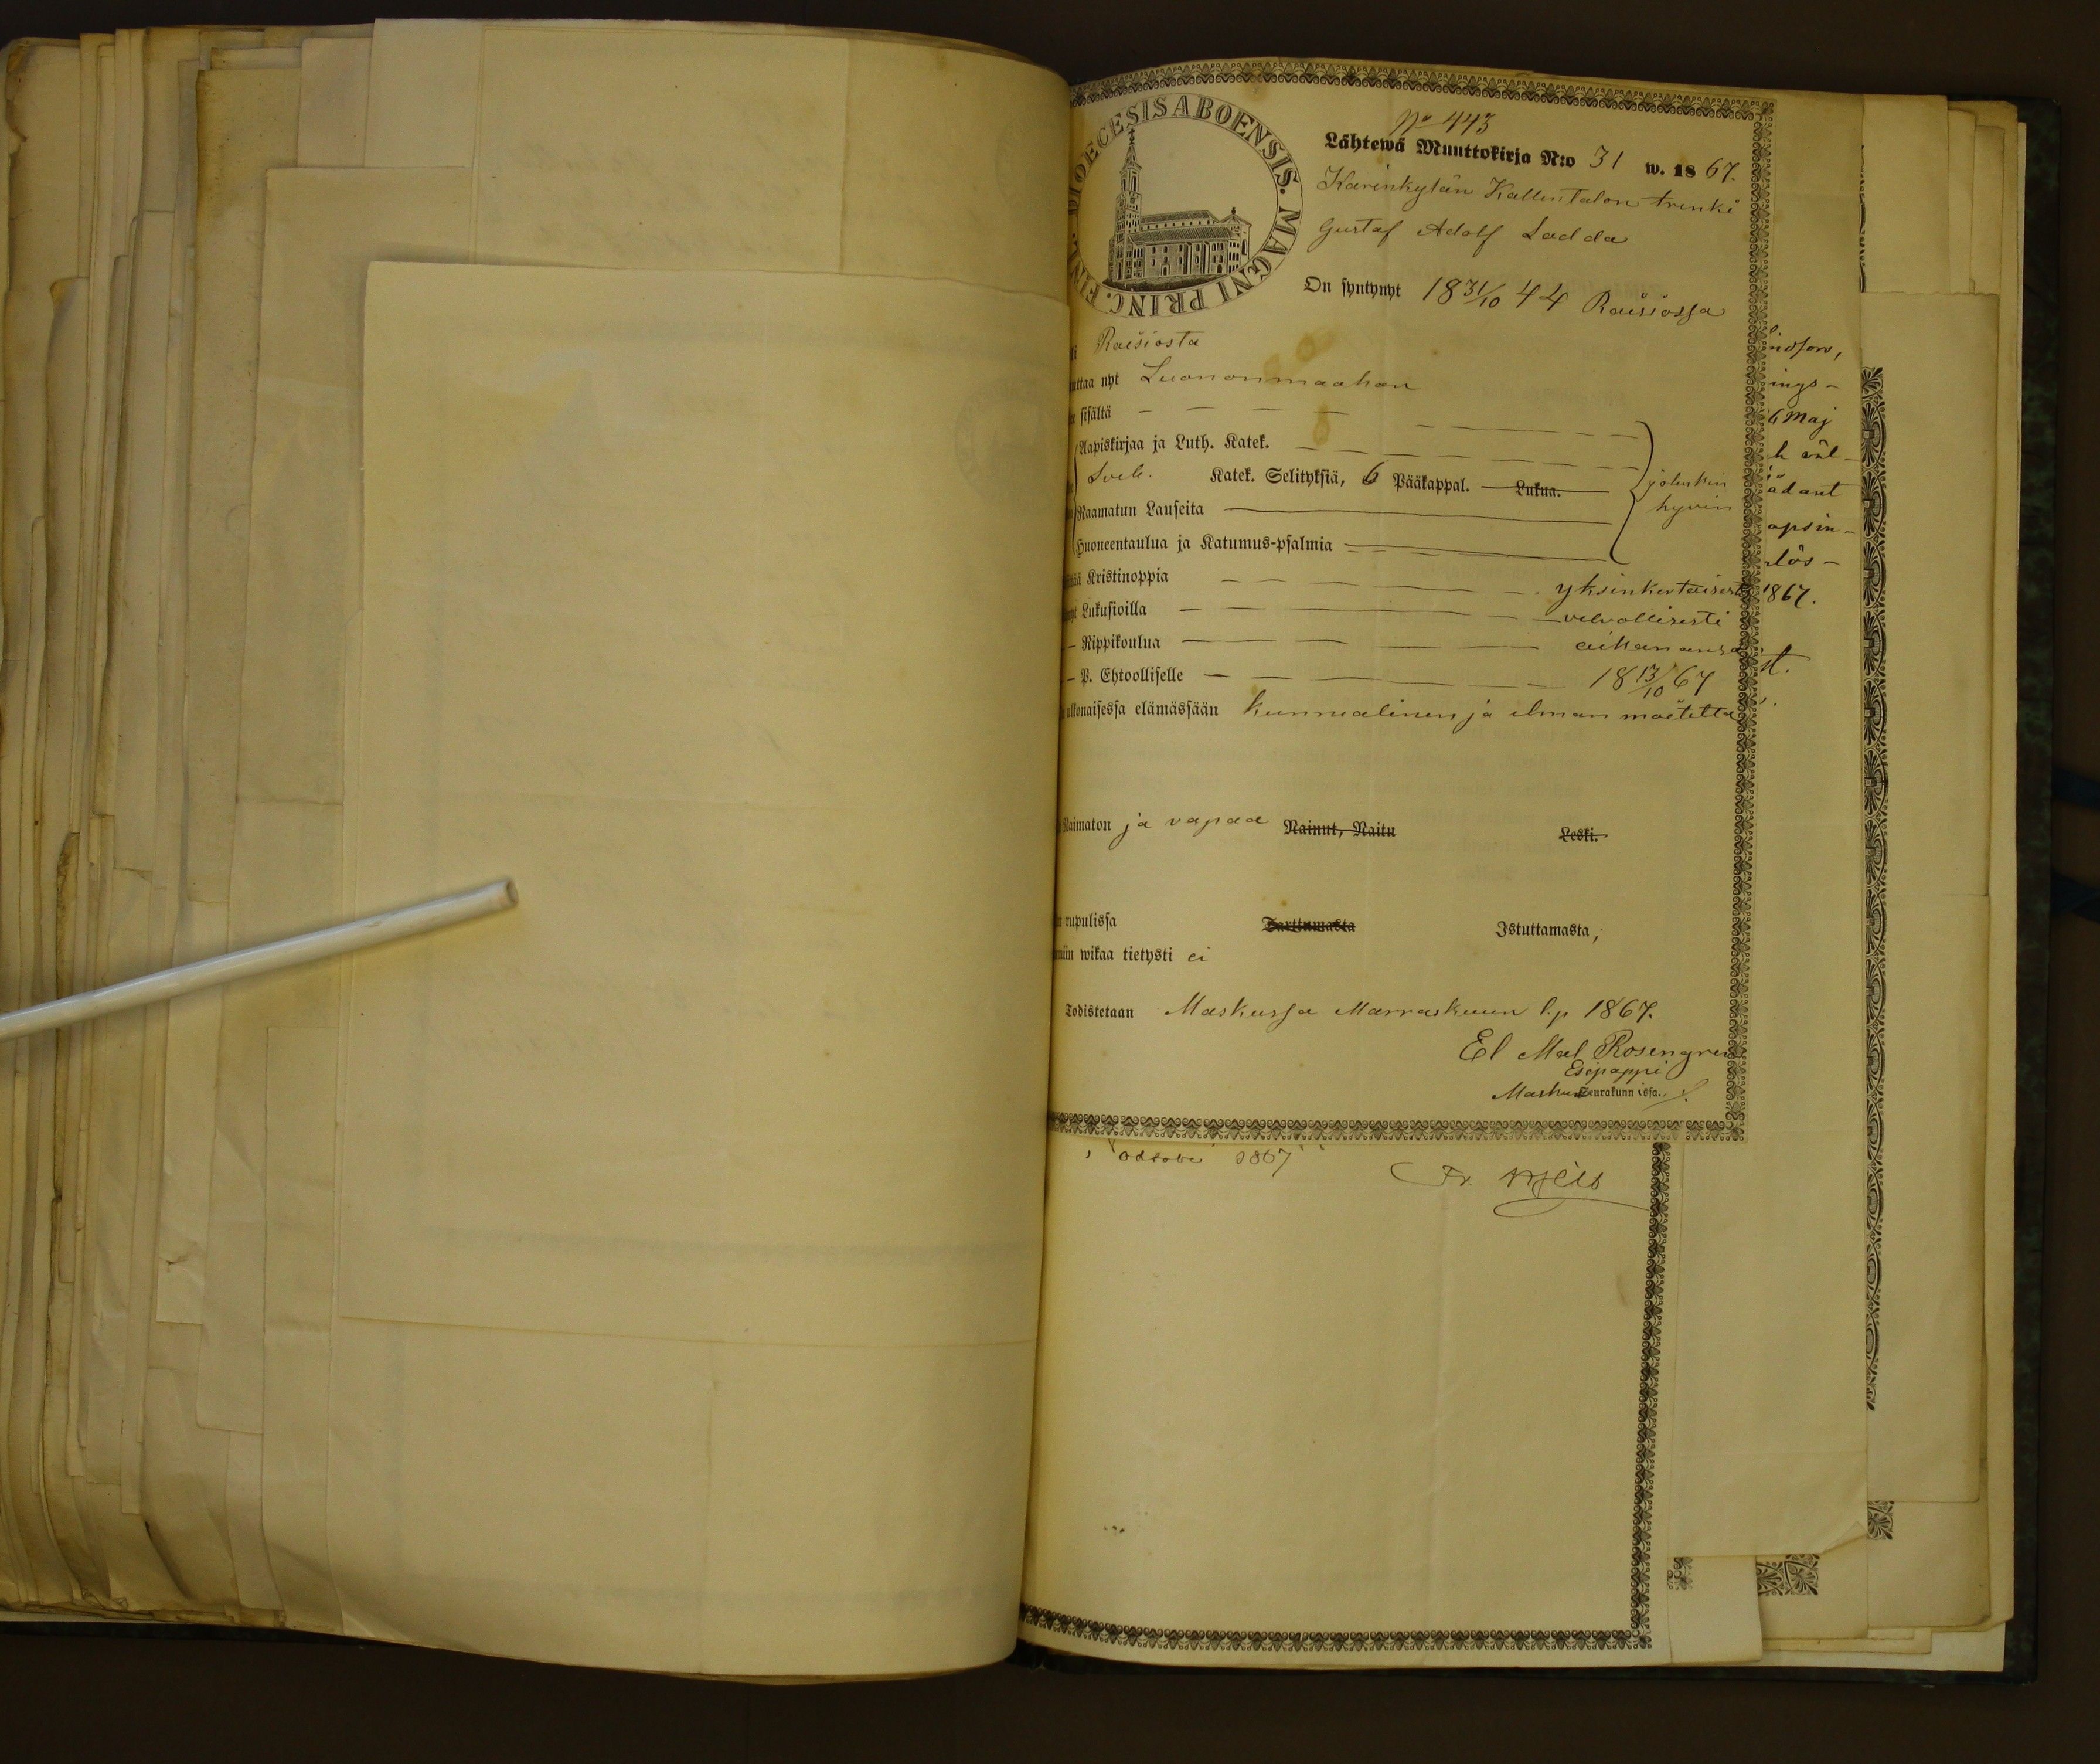 DIOECESIS ABOENSIS. MAGNI PRINC. FINL.
No 443
Lähtewä Muuttokirja N:o 31 w. 1867.
Karinkylän Kallintalon trenki
Gustaf Adolf Ladda
On syntynyt 18 31/10 44 Raisiossa
Raisiosta
uttaa nyt Luononmaahan
sisältä
Aapiskirjaa ja Luth. Katek.
Sveb. Katek. Selityksiä, 6 Pääkappal. Lukua.
jotenkin
hyvin
Raamatun Lauseita
Huoneentaulua ja Katumus-psalmia
Kristinoppia yksinkertaisesti
Lukusioilla velvollisesti
— Rippikoulua aikanansa
— P. Ehtoolliselle 18 13/10 67
ulkonaisessa elämässään kunnialinen ja ilman moetetta
Naimaton ja vapaa Nainut, Naitu Leski.
rupulissa Tarttumasta Istuttamasta,
wikaa tietysti ei
Todistetaan Maskussa Marraskuun 1.p 1867.
El Mal Rosengren
Esipappi
Maskun Seurakunnissa.
ings-
6 Maj
ädant
opsin-
lös-
1867.
1867
Fr.